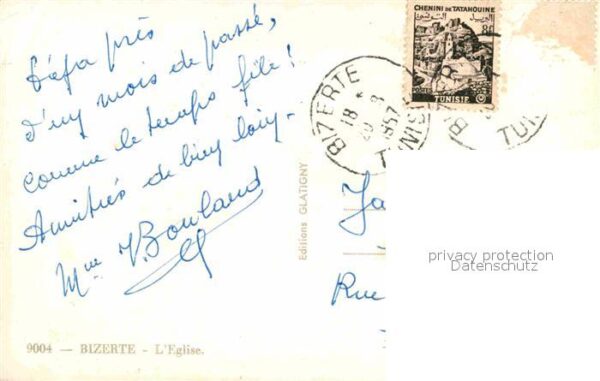 Déjà près
d'un mois de passé,
comme le temps file!
Amitiés de bien loin.
Mme Y Bouland
9004 — BIZERTE - L'Eglise.
Editions GLATIGNY
CHENINI DE TATAHOUINE
8f
POSTES
TUNISIE
BIZERTE
18 *
1957
TUNISIE
BIZERTE
TUNI
Ja
Rue
privacy protection
Datenschutz